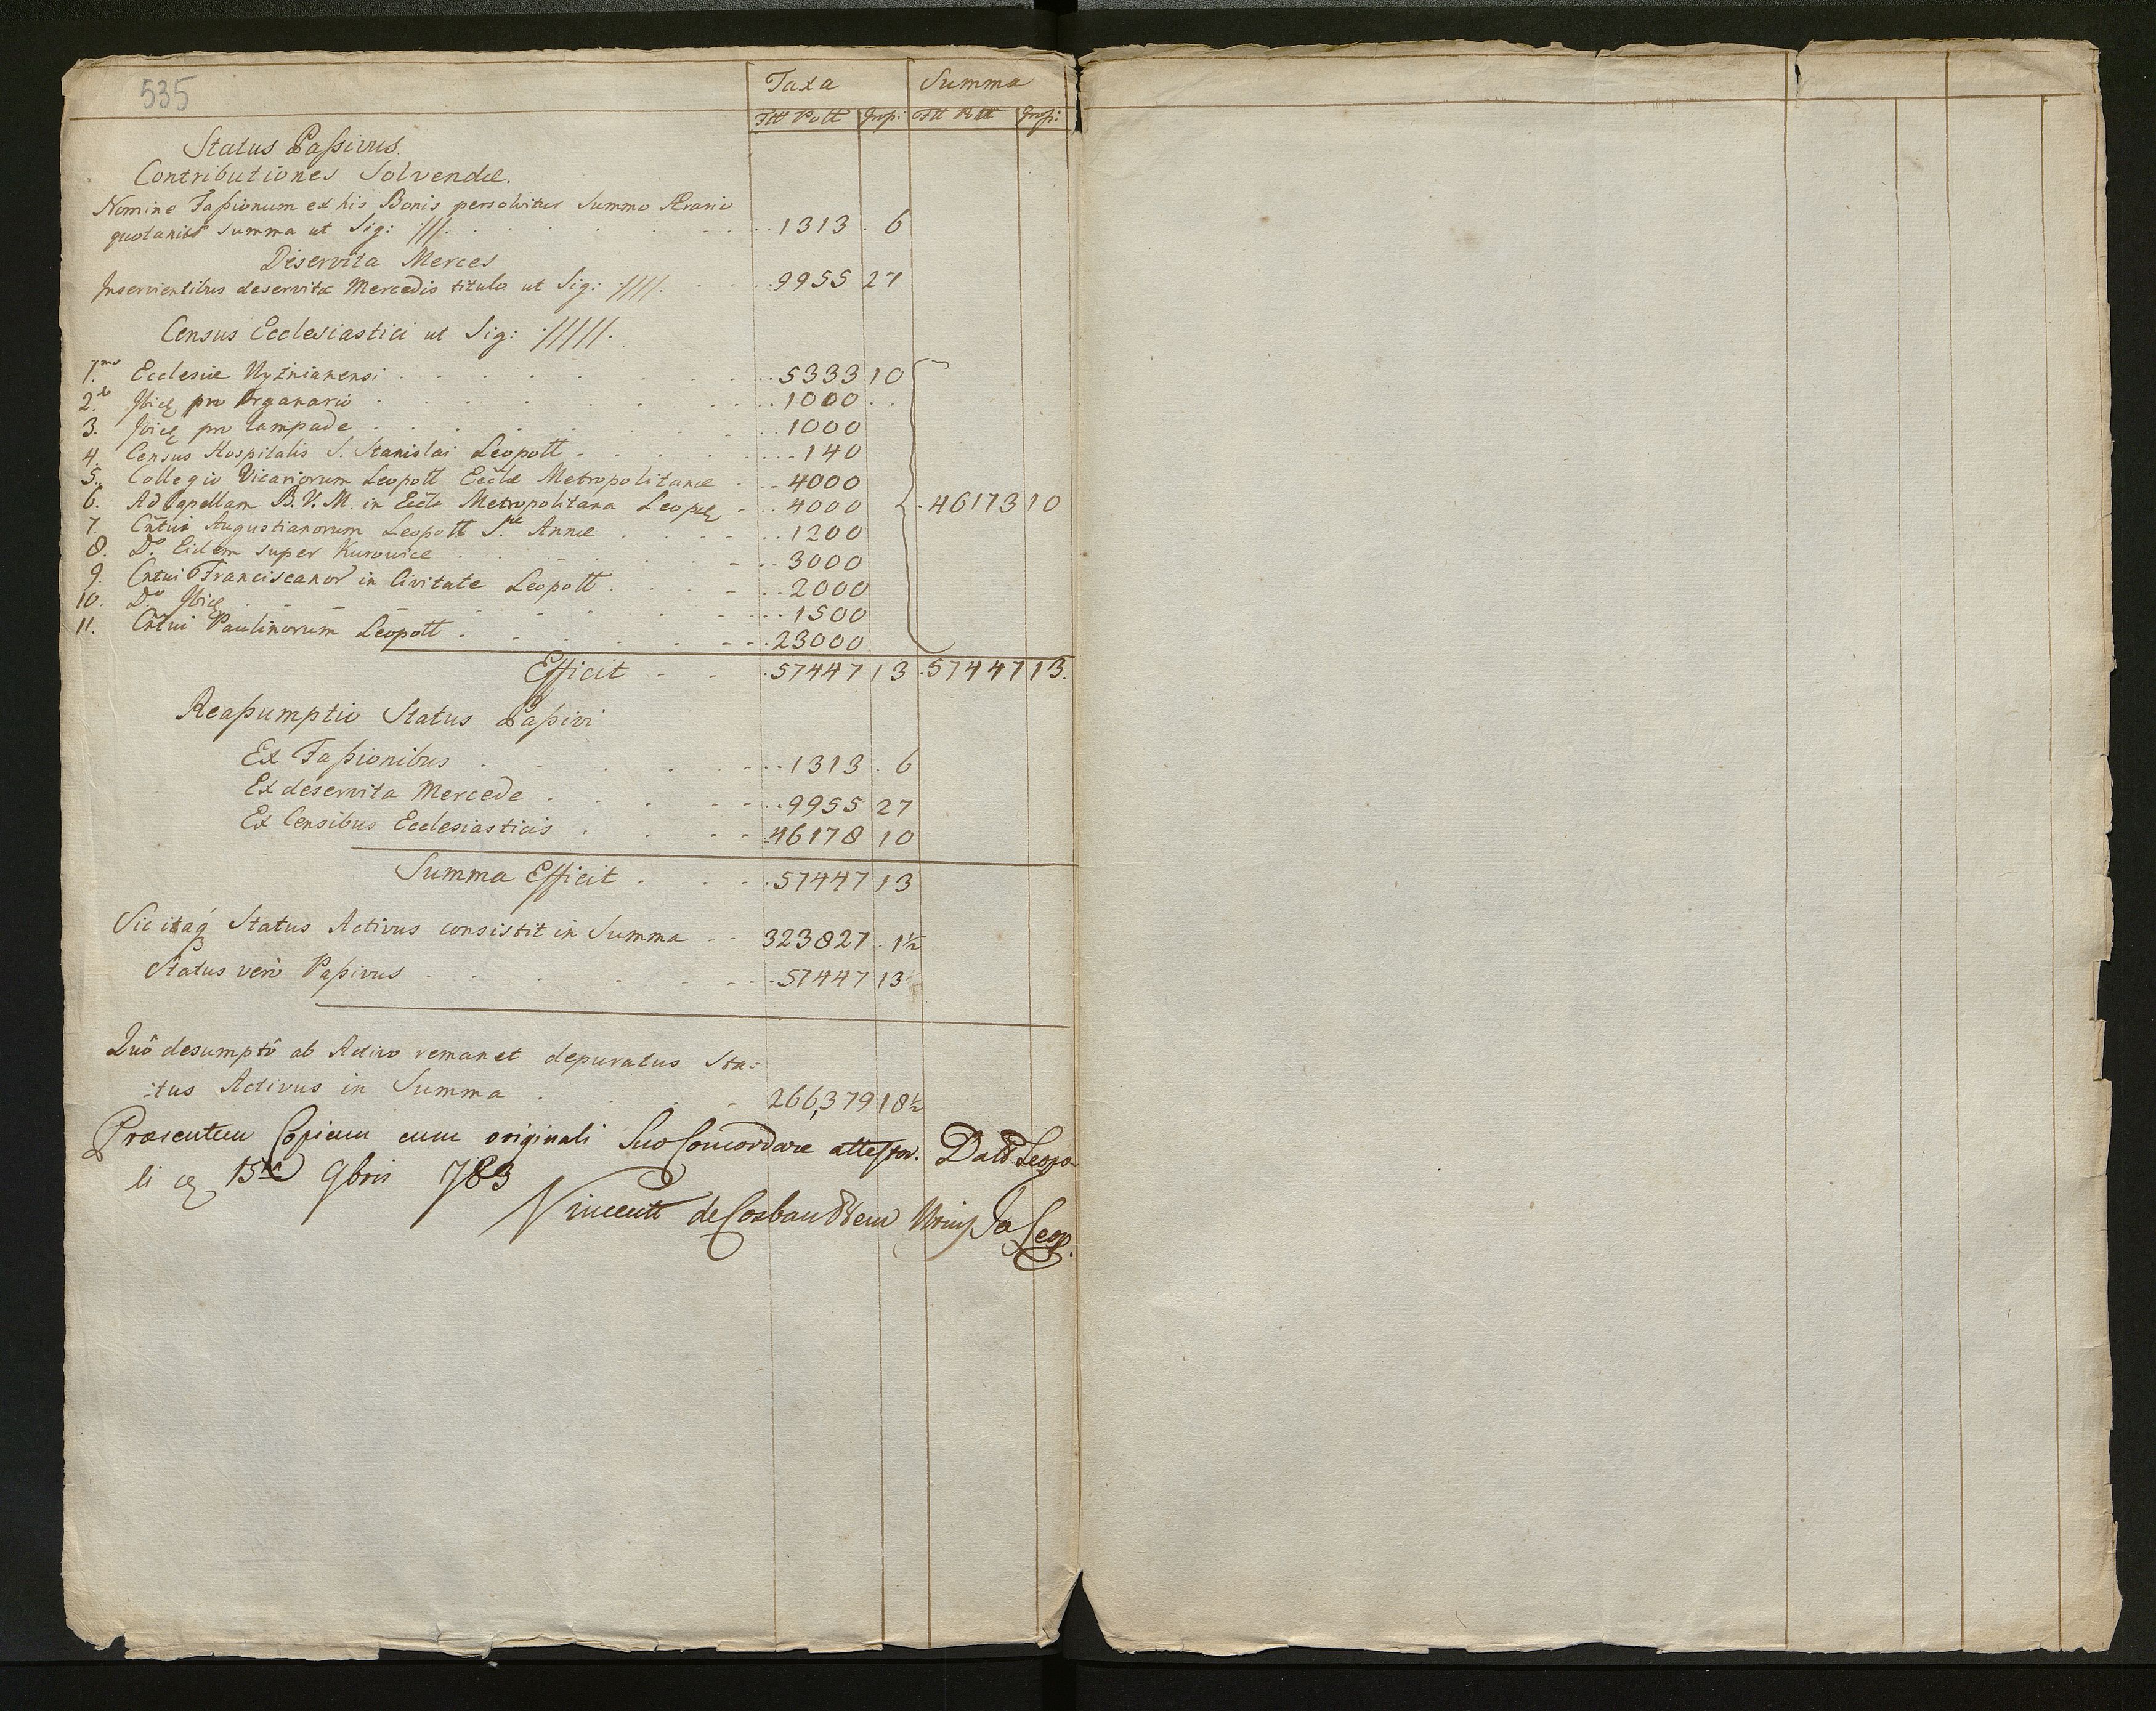 535
Taxa Summa
Fll Poll Groſsi Fll Poll Groſsi
Status Paſsivus.
Contributiones Solvendæ.
Nomine Faſsionum ex his Bonis persolvitur Summo Ærario
quotanis Summa ut Sig: ///. 1313 . 6
Deservita Merces
Inservientibus deservitæ Mercedis titulo ut Sig: ////. 9955 27
Census Ecclesiastici ut Sig: /////.
1.mo Ecclesiæ Uyżnianensi 5333 10
2.do Ibid pro Organario 1000
3. Ibid pro Lampade 1000
4. Census Hospitalis S. Stanislai Leopoll 140
5. Collegio Vicariorum Leopoll Eccłæ Metropolitanæ 4000
6. Ad Capellam B.V.M. in Eccła Metropolitana Leopol 4000 46173 10
7. Cñtui Augustianorum Leopoll S.tæ Annæ 1200
8. D.o Eidem super Kurowice 3000
9. Cñtui Franciscanor in Civitate Leopoll 2000
10. D.o Ibid 1500
11. Cñtui Paulinorum Leopoll 23000
Efficit 57447 13 57447 13.
Reaſsumptio Status Paſsivi
Ex Faſsionibus 1313 . 6
Ex deservita Mercede 9955 27
Ex Censibus Ecclesiasticis 46178 10
Summa Efficit 57447 13
Sic itaq́ Status Activus consistit in Summa 323827 . 1½
Status verò Paſsivus 57447 13
Quô desumptô ab Activo remanet depuratus Sta=
=tus Activus in Summa 266,379 18½
Præsentem Copiam cum originali Suo Concordare atteſtor. Datt Leopo
li 15ta 9bris 783
Vincenti de